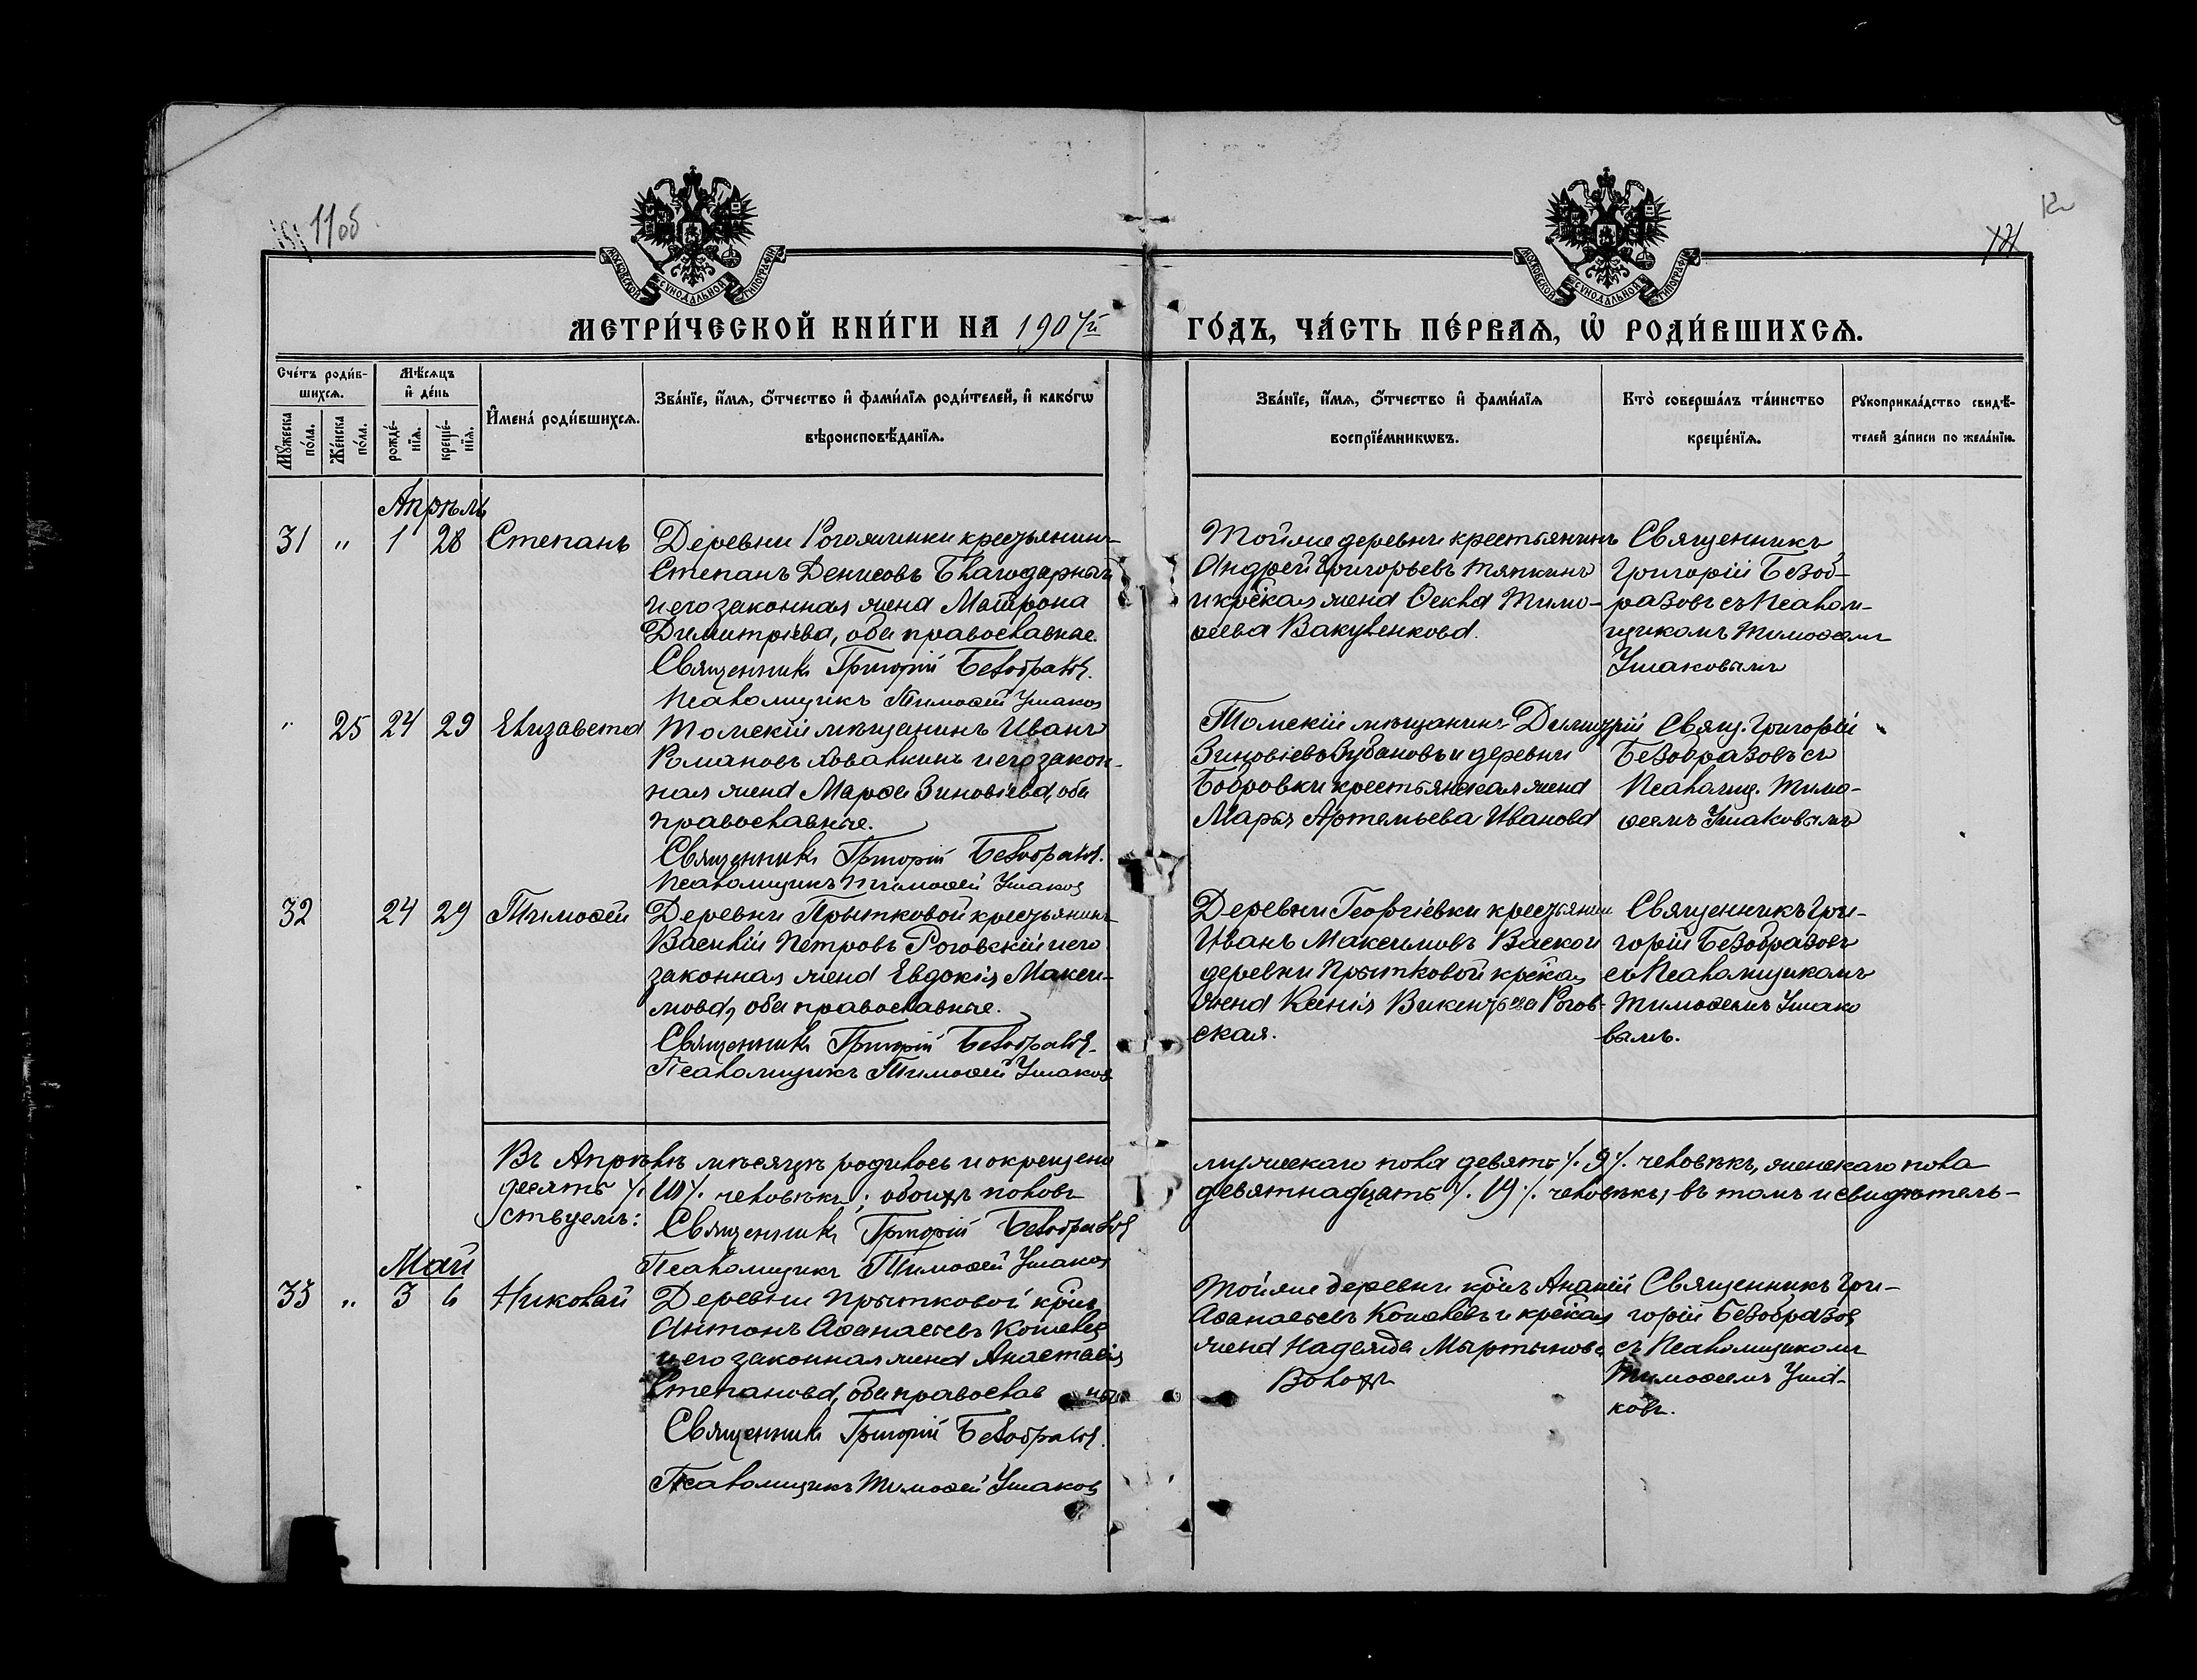 11 об
МОСКОВСКОЙ СѴНОДАЛЬНОЙ ТИПОГРАФІИ
МОСКОВСКОЙ СѴНОДАЛЬНОЙ ТИПОГРАФІИ
МЕТРИ́ЧЕСКОЙ КНИ́ГИ НА 1907й ГО́ДЪ, ЧА́СТЬ ПЕ́РВАѦ, Ѡ РОДИ́ВШИХСѦ.
Сче́тъ роди́в-
шихсѧ.
Мꙋжеска по́ла.
Же́нска по́ла.
Мѣ́сѧцъ
и҆ де́нь
рожде́-
нїѧ.
креще́-
нїѧ.
И҆мена̀ роди́вшихсѧ.
Зва́нїе, и҆́мѧ, ѻ҆́тчество и҆ фами́лїѧ роди́телей, и҆ како́гѡ
вѣроисповѣ́данїѧ.
Зва́нїе, и҆́мѧ, ѻ҆́тчество и҆ фами́лїѧ
воспрїе́мникѡвъ.
Кто̀ соверша́лъ та́инство
креще́нїѧ.
Рꙋкоприкла́дство свидѣ́-
телей за́писи по жела́нїю.
Апрѣль
31 " 1 28 Степанъ
Деревни Рогожинки крестьянинъ
Степанъ Денисовъ Благодарный
и его законная жена Матрона
Димитріева, оба православные.
Священникъ Григорій Безобразов.
Псаломщикъ Тимоѳей Ушаков
Тойже деревни крестьянинъ
Андрей Григорьевъ Тяпкинъ
и кр҃ская жена Оекла Тимо-
ѳеева Вакуленкова.
Священникъ
Григорій Безоб-
разовъ съ Псалом-
щикомъ Тимоѳеемъ
Ушаковымъ
" 25 24 29 Елизавета
Томскій мѣщанинъ Иванъ
Романовъ и его закон-
ная жена Марѳа Зиновіева, оба
православные.
Священникъ Григорій Безобразов.
Псаломщикъ Тимоѳей Ушаков
Томскій мѣщанинъ Димитрій
Зиновіевъ Зубановъ и деревни
Бобровки крестьянская жена
Марья Артемьева Иванова
Свящ. Григорій
Безобразовъ съ
Псаломщ. Тимо-
ѳеемъ Ушаковымъ
32 24 29 Тимоѳей
Деревни Прытковой крестьянинъ
Василій Петровъ Роговскій и его
законная жена Евдокія Макси-
мова, оба православные.
Священникъ Григорій Безобразов.
Псаломщикъ Тимоѳей Ушаков
Деревни Георгіевки крестьянин
Иванъ Максимовъ
деревни Прытковой кр҃ская
жена Ксенія Викентьева Рогов-
ская.
Священникъ Гри-
горій Безобразовъ
съ Псаломщикомъ
Тимоѳеемъ Ушако
вымъ.
Въ Апрѣлѣ мѣсяцѣ родилось и окрещено мужескаго пола девять ·/. 9 ·/. человѣкъ, женскаго пола
десять ·/. 10 ·/. человѣкъ; обоихъ половъ девятнадцать ·/. 19 ·/. человѣкъ, въ томъ и свидѣтель-
ствуемъ:
Священникъ Григорій Безобразов
Псаломщикъ Тимоѳей Ушаков
Май
33 " 3 6 Николай
Деревни Прытковой кр҃нъ
Антонъ Аѳанасьевъ Кошелев
и его законная жена Анастасія
Степанова, оба православ ные
Священникъ Григорій Безобразов.
Псаломщикъ Тимоѳей Ушаков
Тойже деревни кр҃нъ Ананій
Аѳанасьевъ Кошелевъ и кр҃ская
жена Надежда Мартынова
Волохъ
Священникъ Гри-
горій Безобразов
съ Псаломщикомъ
Тимоѳеемъ Уша-
ковъ.